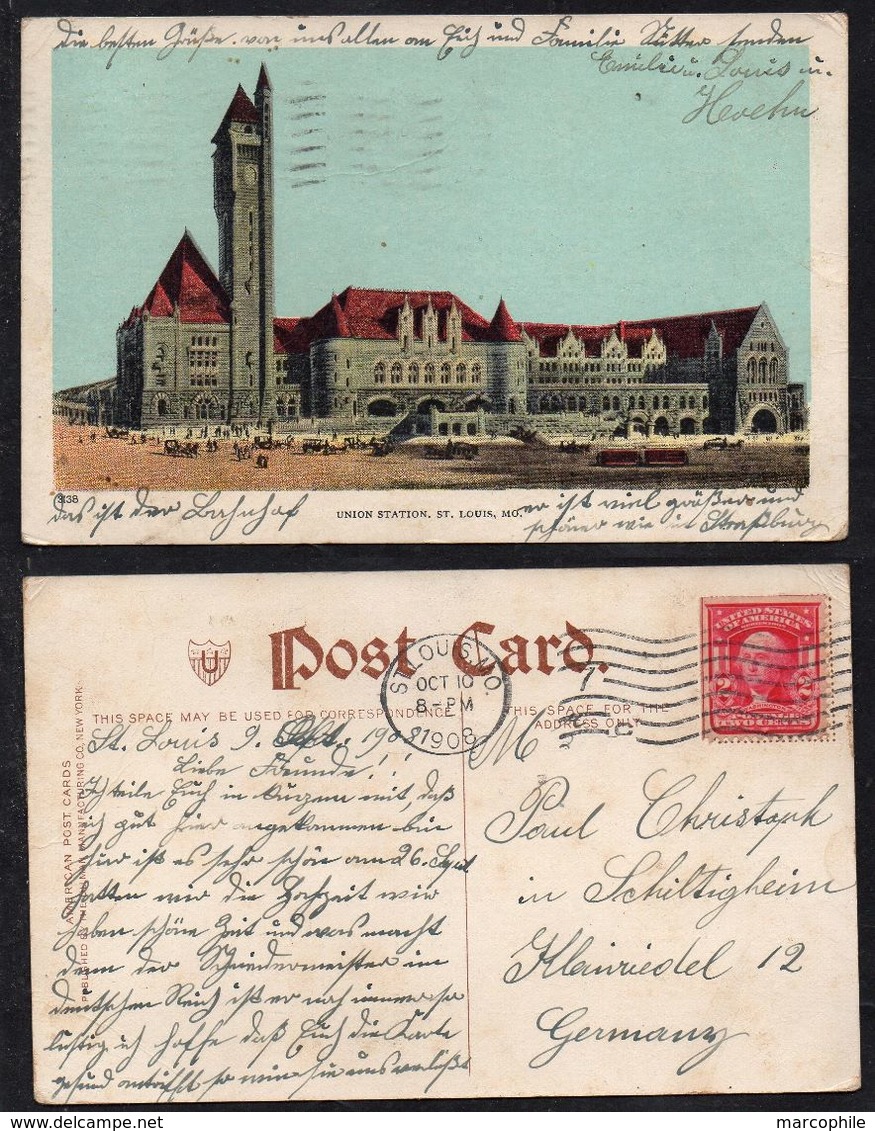 Die besten Grüße von uns allen an Euch und Familie Sütter senden
Emilie u. Louis u.
Hoehn
3138
das ist der Bahnhof
UNION STATION, ST. LOUIS, MO.
er ist viel größer und
schöner wie in Straßburg
Post Card.
THIS SPACE MAY BE USED FOR CORRESPONDENCE
THIS SPACE FOR THE
ADDRESS ONLY
ST. LOUIS, MO.
OCT 10
8-PM
1908
7
UNITED STATES
OF AMERICA
2 2
TWO CENTS
U
AMERICAN POST CARDS
MANUFACTURING CO. NEW YORK
St. Louis 9. 190
Liebe Freunde!!
teile Euch in Kurzem mit, daß
ich gut hier angekommen bin
hier ist es sehr schön am 26. Sept
hatten wir die Hochzeit wir
haben schöne Zeit und was macht
denn der Schiedermeister im
deutschen Reich ist er noch immer so
lustig ich hoffe daß Euch die Karte
gesund antrifft so wie sie uns verläßt
M
Paul Christoph
in Schiltigheim
Kleinriedel 12
Germany
marcophile
www.delcampe.net